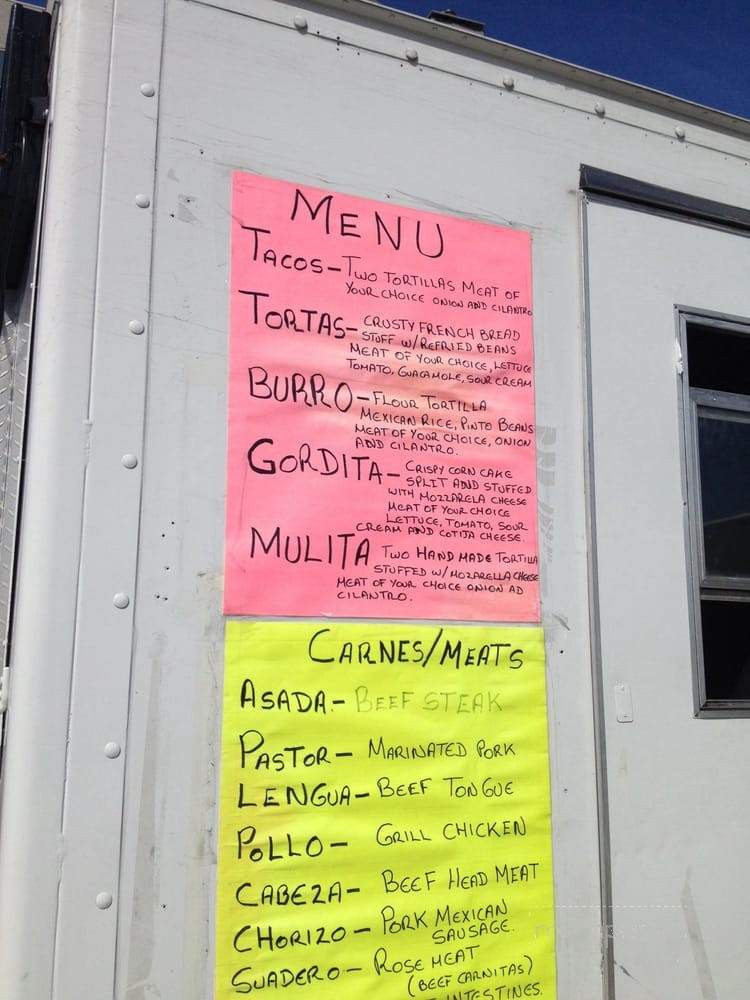 MENU
TACOS-TWO TORTILLAS MEAT OF
YOUR CHOICE ONION AND CILANTRO
TORTAS- CRUSTY FRENCH BREAD
STUFF W/REFRIED BEANS
MEAT OF YOUR CHOICE, LETTUCE
TOMATO, GUACAMOLE, SOUR CREAM
BURRO-FLOUR TORTILLA
MEXICAN RICE, PINTO BEANS
MEAT OF YOUR CHOICE, ONION
AND CILANTRO.
GORDITA- CRISPY CORN CAKE
SPLIT AND STUFFED
WITH MOZZARELA CHEESE
MEAT OF YOUR CHOICE
LETTUCE, TOMATO, SOUR
CREAM AND COTIJA CHEESE.
MULITA TWO HAND MADE TORTILLA
STUFFED W/MOZARELLA CHEESE
MEAT OF YOUR CHOICE ONION AD
CILANTRO.
CARNES/MEATS
ASADA.- BEEF STEAK
PASTOR- MARINATED PORK
LENGUA- BEEF TONGUE
POLLO- GRILL CHICKEN
CABEZA- BEEF HEAD MEAT
CHORIZO- PORK MEXICAN
SAUSAGE.
SUADERO- ROSE MEAT
(BEEF CARNITAS)
INTESTINES.